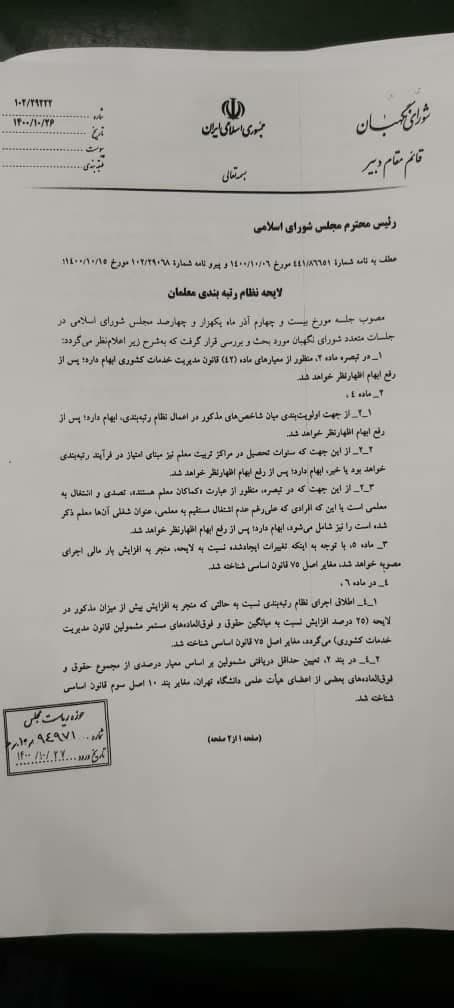 شورای نگهبان
قائم مقام دبیر
جمهوری اسلامی ایران
بسمه تعالی
شماره ۱۰۲/۲۹۲۲۲
تاریخ ۱۴۰۰/۱۰/۲۶
پیوست
طبقه‌بندی
رئیس محترم مجلس شورای اسلامی
عطف به نامه شمارهٔ ۴۴۱/۸۶۶۵۱ مورخ ۱۴۰۰/۱۰/۰۶ و پیرو نامه شمارهٔ ۱۰۲/۲۹۰۶۸ مورخ ۱۴۰۰/۱۰/۱۵؛
لایحه نظام رتبه بندی معلمان
مصوب جلسه مورخ بیست و چهارم آذر ماه یکهزار و چهارصد مجلس شورای اسلامی در
جلسات متعدد شورای نگهبان مورد بحث و بررسی قرار گرفت که به‌شرح زیر اعلام‌نظر می‌گردد:
۱_ در تبصره ماده ۲، منظور از معیارهای ماده (۴۲) قانون مدیریت خدمات کشوری ابهام دارد؛ پس از
رفع ابهام اظهارنظر خواهد شد.
۲_ ماده ۴ ،
۲_۱_ از جهت اولویت‌بندی میان شاخص‌های مذکور در اعمال نظام رتبه‌بندی، ابهام دارد؛ پس از
رفع ابهام اظهارنظر خواهد شد.
۲_۲_ از این جهت که سنوات تحصیل در مراکز تربیت معلم نیز مبنای امتیاز در فرآیند رتبه‌بندی
خواهد بود یا خیر، ابهام دارد؛ پس از رفع ابهام اظهارنظر خواهد شد.
۲_۳_ از این جهت که در تبصره، منظور از عبارت «کماکان معلم هستند»، تصدی و اشتغال به
معلمی است یا این که افرادی که علی‌رغم عدم اشتغال مستقیم به معلمی، عنوان شغلی آن‌ها معلم ذکر
شده است را نیز شامل می‌شود، ابهام دارد؛ پس از رفع ابهام اظهارنظر خواهد شد.
۳_ ماده ۵، با توجه به اینکه تغییرات ایجادشده نسبت به لایحه، منجر به افزایش بار مالی اجرای
مصوبه خواهد شد، مغایر اصل ۷۵ قانون اساسی شناخته شد.
۴_ در ماده ۶ ،
۴_۱_ اطلاق اجرای نظام رتبه‌بندی نسبت به حالتی که منجر به افزایش بیش از میزان مذکور در
لایحه (۲۵ درصد افزایش نسبت به میانگین حقوق و فوق‌العاده‌های مستمر مشمولین قانون مدیریت
خدمات کشوری) می‌گردد، مغایر اصل ۷۵ قانون اساسی شناخته شد.
۴_۲_ در بند ۲، تعیین حداقل دریافتی مشمولین بر اساس معیار درصدی از مجموع حقوق و
فوق‌العاده‌های بعضی از اعضای هیأت علمی دانشگاه تهران، مغایر بند ۱۰ اصل سوم قانون اساسی
شناخته شد.
(صفحه ۱ از ۲ صفحه)
حوزه ریاست مجلس
شماره ۹۴۹۷۱
تاریخ ورود ۱۴۰۰/۱۰/۲۷